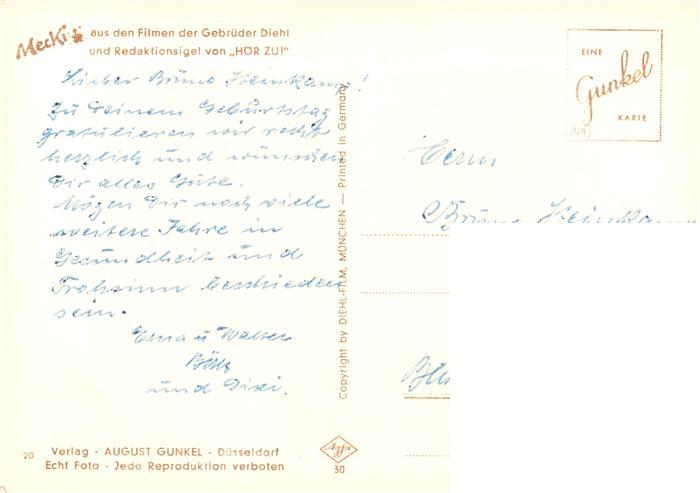 Mecki aus den Filmen der Gebrüder Diehl
und Redaktionsigel von „HÖR ZU!"
Lieber Bruno Steinkamp!
Zu Deinem Geburtstag
gratulieren wir recht
herzlich und wünschen
Dir alles Gute.
Mögen Dir noch viele
weitere Jahre in
Gesundheit und
Frohsinn beschieden
sein.
Erna u. Walter
und Dixi.
20 Verlag - AUGUST GUNKEL - Düsseldorf
Echt Foto - Jede Reproduktion verboten
Copyright by DIEHL-FILM, MÜNCHEN — Printed in Germany
Agfa
30
EINE
Gunkel
KARTE
Herrn
Bruno Steinkamp